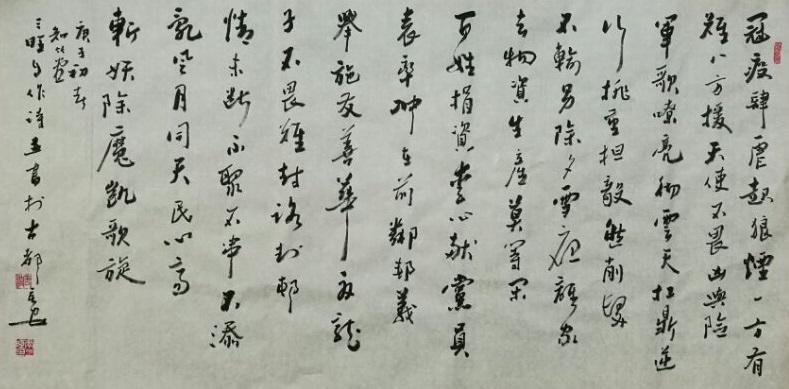 冠疫肆虐起狼烟一方有
难八方援天使不畏凶与险
军歌嘹亮彻云天扛鼎逆
行挑重担毅然削鬓
不输男除夕雪疫辞家
去物资生产莫等闲
百姓捐资季心献党员
表率冲在前邻邦义
举施友善华夏龙
子不畏难封路封村
情未断不聚不串不添
乱风月同天民心齐
斩妖除魔凯歌旋
庚子初春
知竹堂
三旺自作诗并书于古都长安